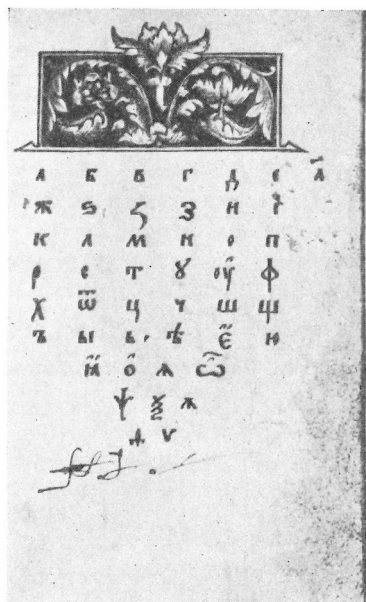 а б в г д е а҃
ж ѕ ꙁ з и і
к л м н о п
р с т ꙋ оу ф
х ѿ ц ч ш щ
ъ ы ь ѣ є ю
ꙗ о ѧ ѽ
ѱ ѯ ѫ
ѳ ѵ